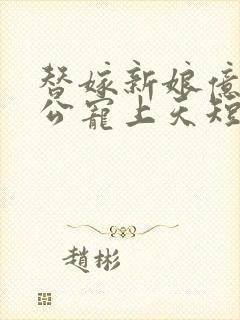 替嫁新娘億
公寵上天短
趙彬